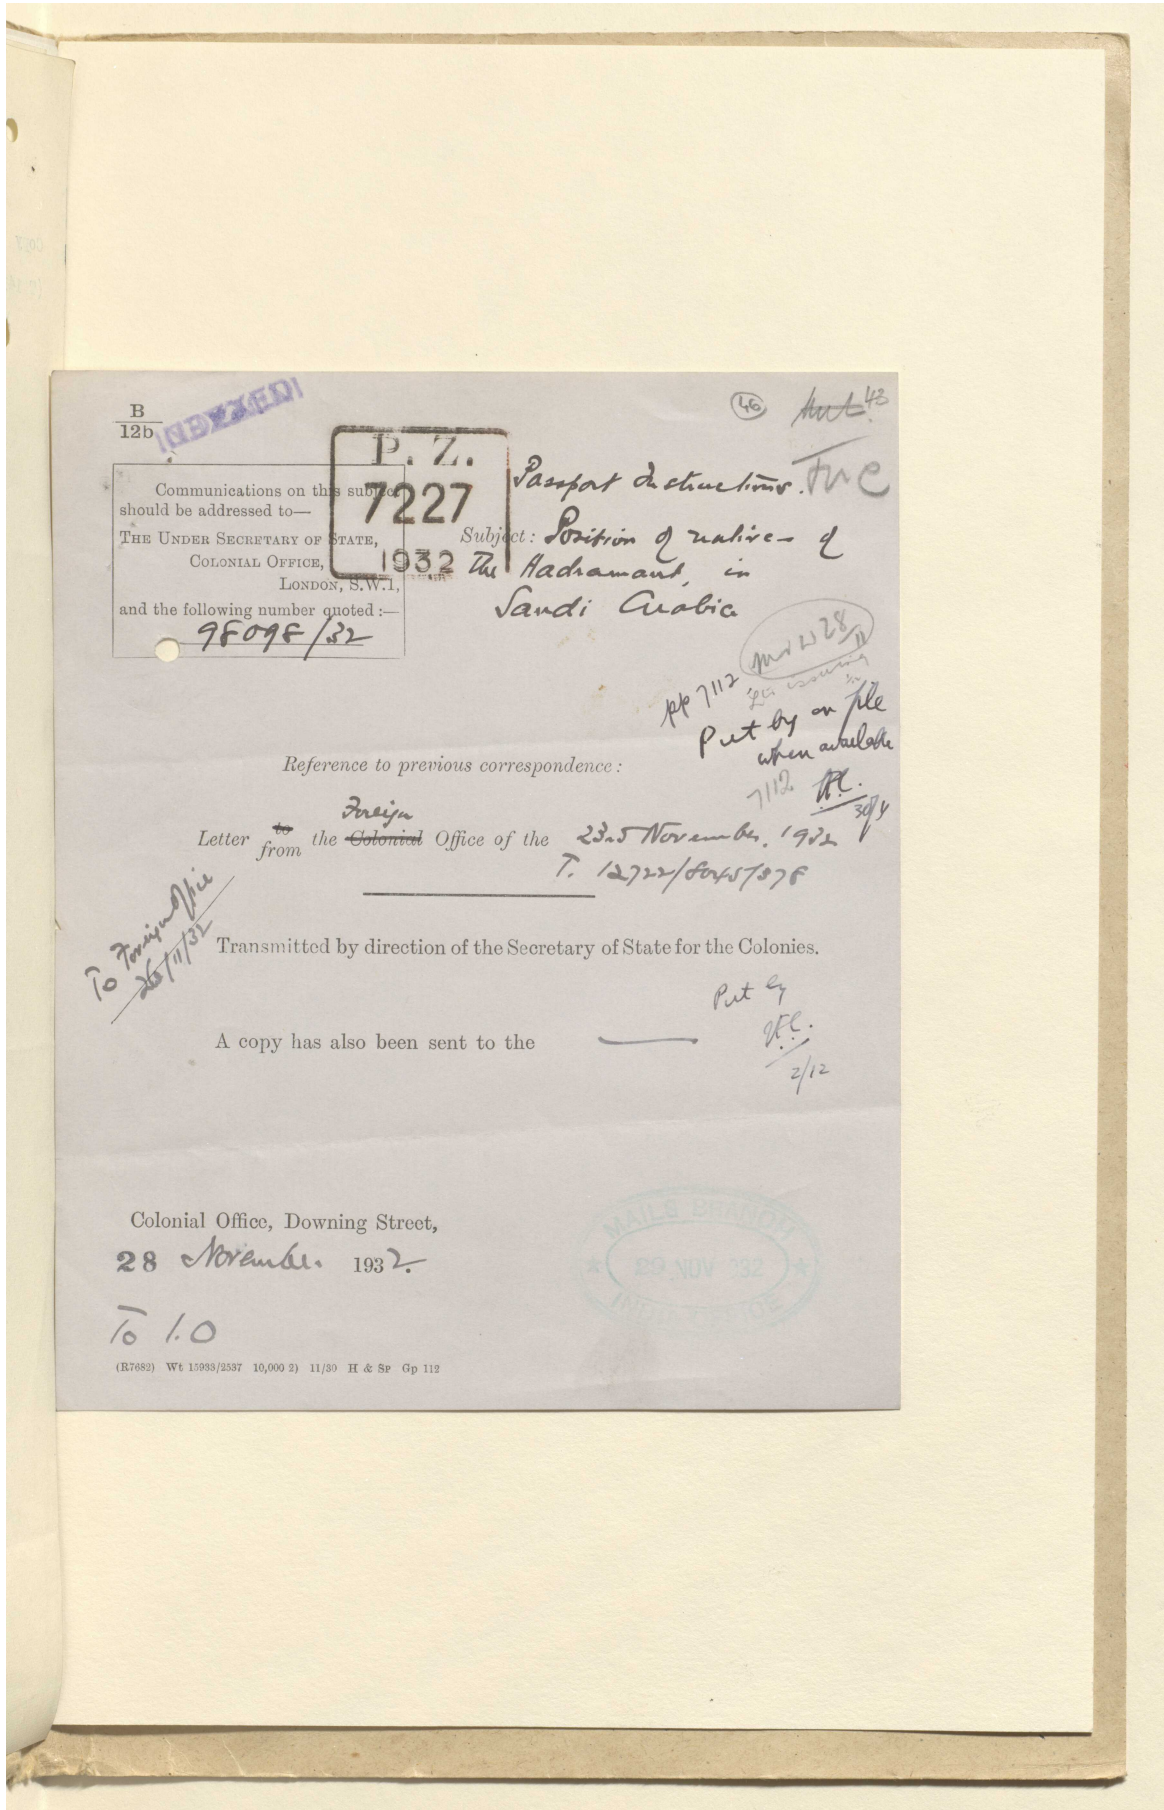 B
12b
INDEXED
46
43
P. Z.
7227
1932
Communications on this subject
should be addressed to—
THE UNDER SECRETARY OF STATE,
COLONIAL OFFICE,
LONDON, S.W.1,
and the following number quoted :—
98098/32
Passport Instructions.
Subject: Position of natives of
the Hadramaut, in
Saudi Arabia
28/11
pp 7112
issuing
Put by on file
when available
7112
Reference to previous correspondence :
Foreign
Letter to from the Colonial Office of the 23rd November, 1932
T. 12722/8045/378
To Foreign Office
26/11/32
Transmitted by direction of the Secretary of State for the Colonies.
Put by
A copy has also been sent to the
2/12
Colonial Office, Downing Street,
28 November 1932.
MAILS BRANCH
29 NOV 1932
INDIA OFFICE
To I.O
(R7682) Wt 15933/2537 10,000 2) 11/30 H & SP Gp 112